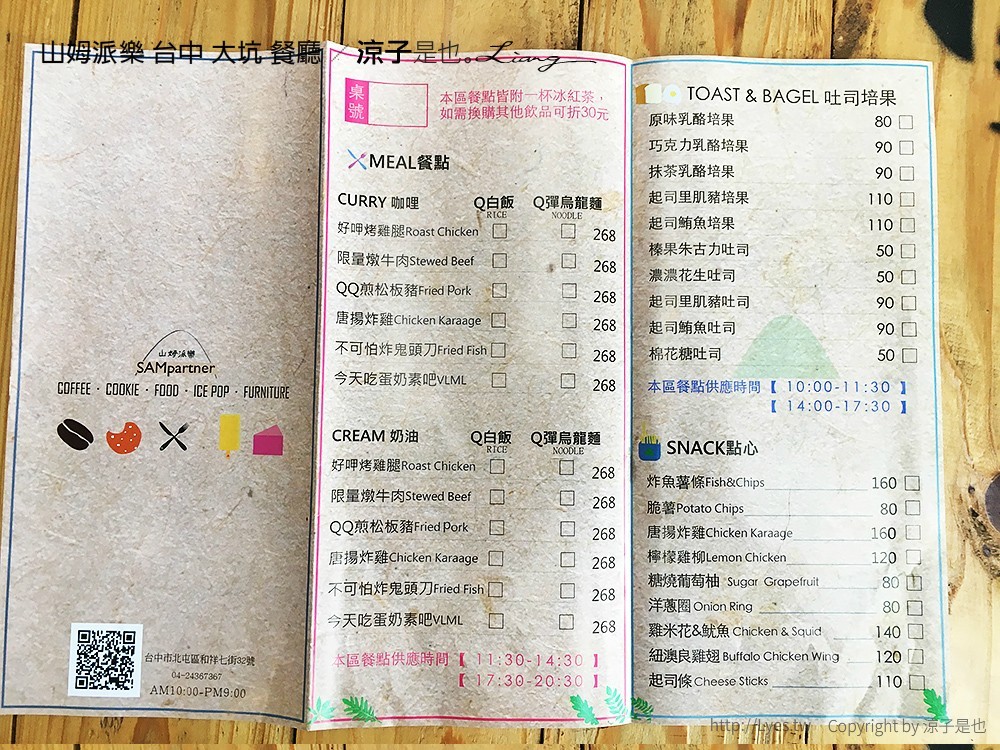 山姆派樂 台中 大坑 餐廳 / 涼子是也。Liang
山姆派樂
SAMpartner
COFFEE · COOKIE · FOOD · ICE POP · FURNITURE
台中市北屯區和祥七街32號
04-24367367
AM10:00-PM9:00
桌號
本區餐點皆附一杯冰紅茶，
如需換購其他飲品可折30元
MEAL餐點
CURRY 咖哩 Q白飯 Q彈烏龍麵
RICE NOODLE
好呷烤雞腿Roast Chicken 268
限量燉牛肉Stewed Beef 268
QQ煎松板豬Fried Pork 268
唐揚炸雞Chicken Karaage 268
不可怕炸鬼頭刀Fried Fish 268
今天吃蛋奶素吧VLML 268
CREAM 奶油 Q白飯 Q彈烏龍麵
RICE NOODLE
好呷烤雞腿Roast Chicken 268
限量燉牛肉Stewed Beef 268
QQ煎松板豬Fried Pork 268
唐揚炸雞Chicken Karaage 268
不可怕炸鬼頭刀Fried Fish 268
今天吃蛋奶素吧VLML 268
本區餐點供應時間【 11:30-14:30 】
【 17:30-20:30 】
TOAST & BAGEL 吐司培果
原味乳酪培果 80
巧克力乳酪培果 90
抹茶乳酪培果 90
起司里肌豬培果 110
起司鮪魚培果 110
榛果朱古力吐司 50
濃濃花生吐司 50
起司里肌豬吐司 90
起司鮪魚吐司 90
棉花糖吐司 50
本區餐點供應時間【 10:00-11:30 】
【 14:00-17:30 】
SNACK點心
炸魚薯條Fish&Chips 160
脆薯Potato Chips 80
唐揚炸雞Chicken Karaage 160
檸檬雞柳Lemon Chicken 120
糖燒葡萄柚 Sugar Grapefruit 80
洋蔥圈 Onion Ring 80
雞米花&魷魚 Chicken & Squid 140
紐澳良雞翅 Buffalo Chicken Wing 120
起司條 Cheese Sticks 110
http://Lyes.tw Copyright by 涼子是也